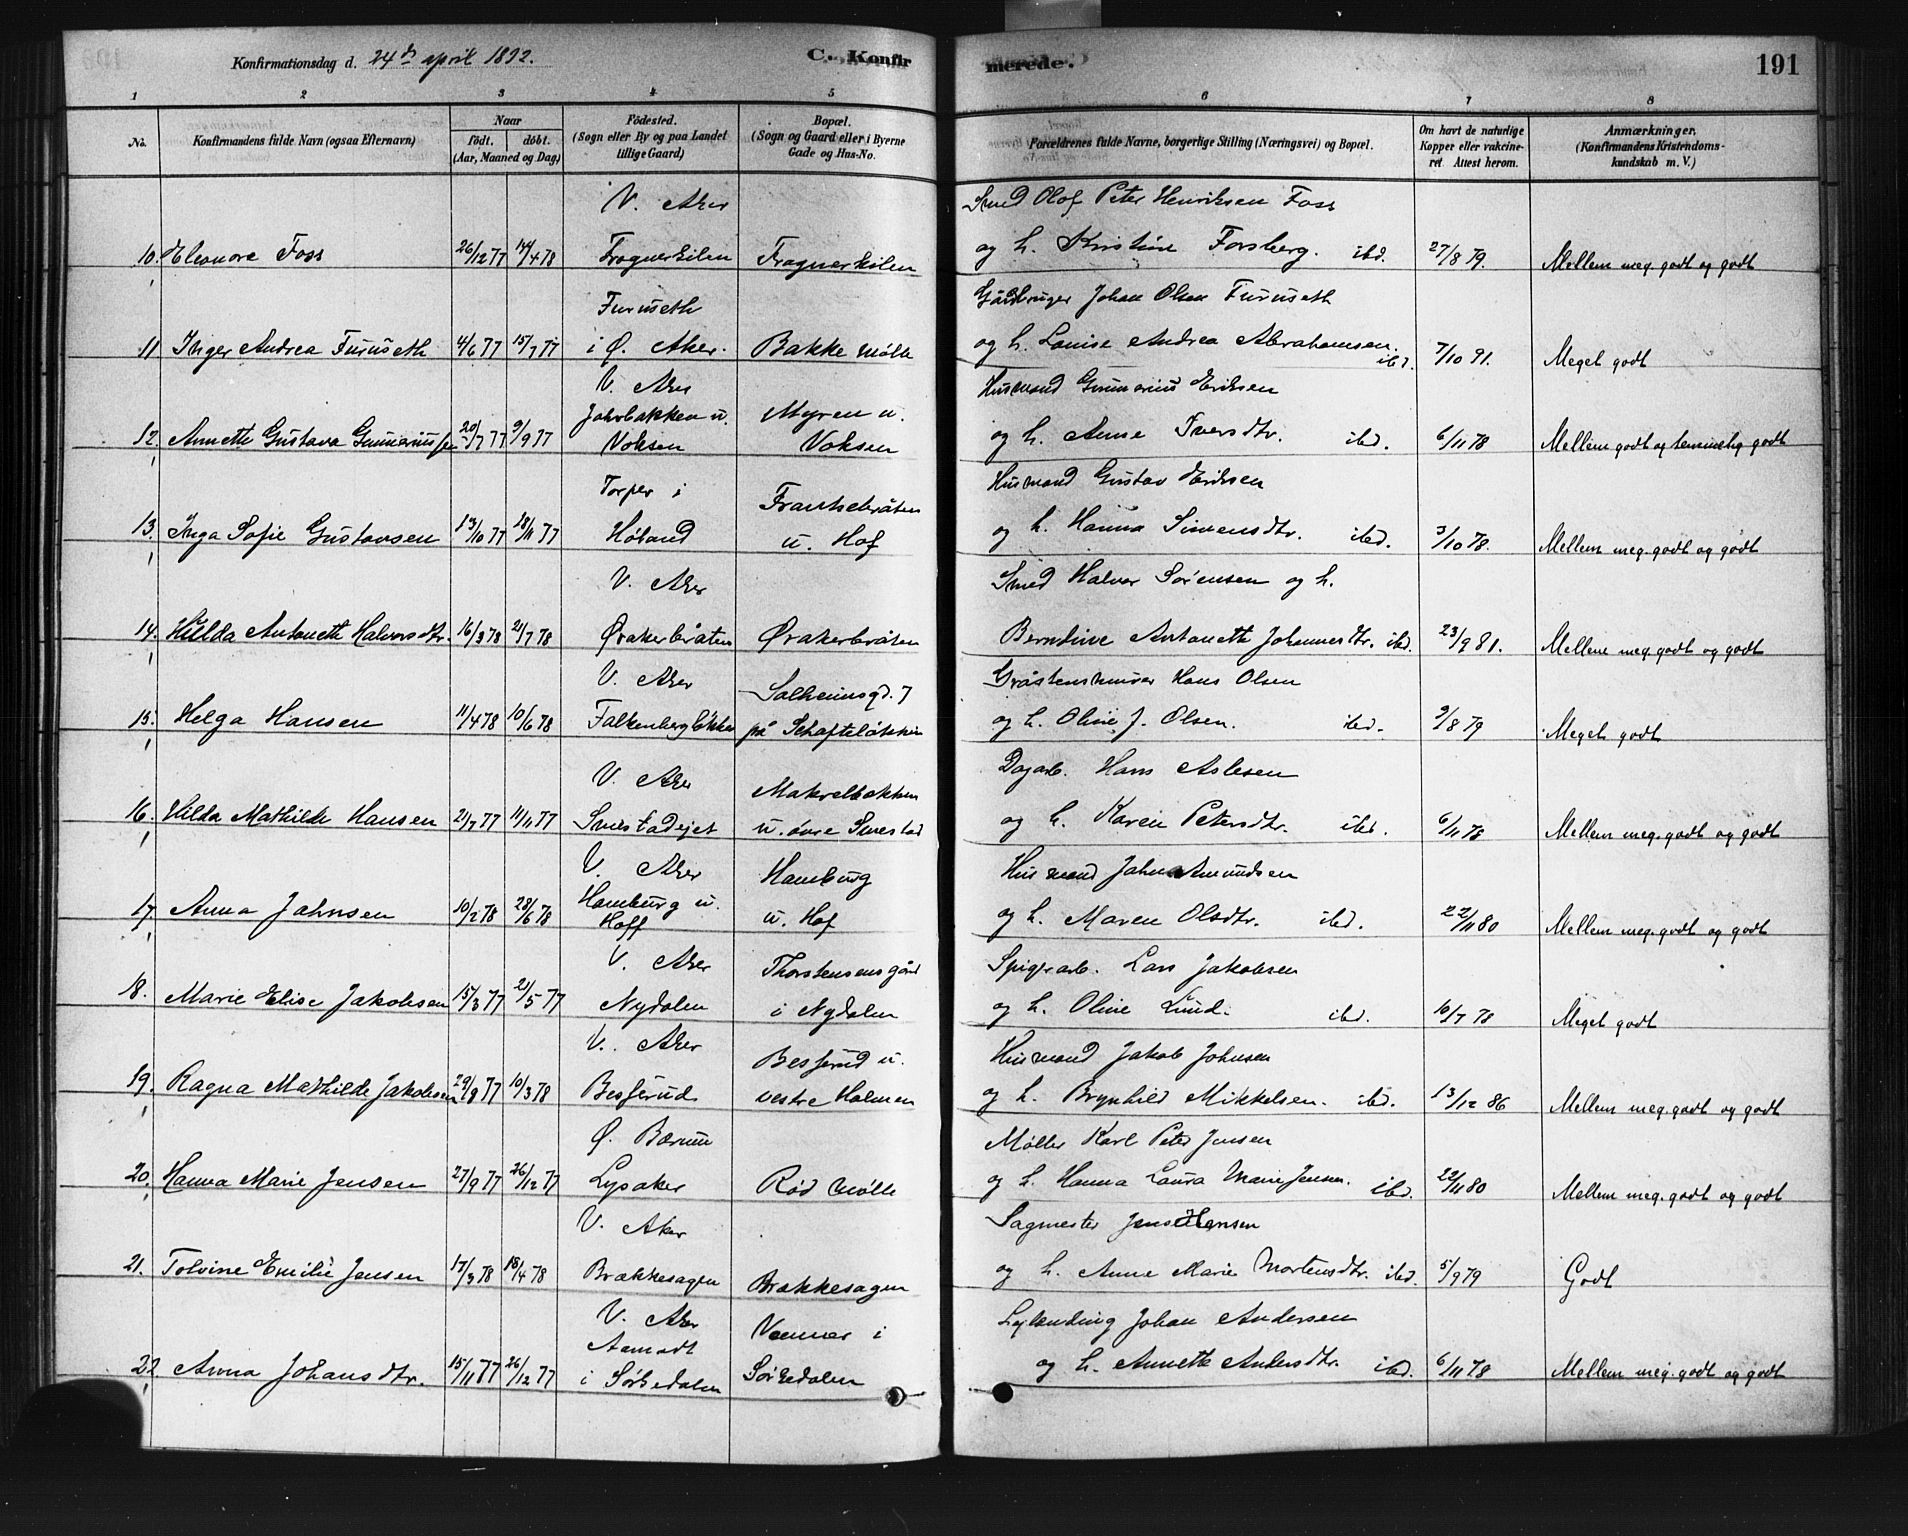 Konfirmationsdag d. 24de april 1892.
C. Konfirmerede.
191
1 2 3 4 5 6 7 8
No.
Konfirmandens fulde Navn (ogsaa Efternavn)
Naar
født. døbt.
(Aar, Maaned og Dag)
Fødested.
(Sogn eller By og paa Landet
tillige Gaard)
Bopæl.
(Sogn og Gaard eller i Byerne
Gade og Hus-No.
Forældrenes fulde Navne, borgerlige Stilling (Næringsvei) og Bopæl.
Om havt de naturlige
Kopper eller vakcine-
ret Attest herom.
Anmærkninger.
(Konfirmandens Kristendoms-
kundskab m. V.)
V. Aker Smed Olof Peter Henriksen Foss
10. Eleonore Foss 26/12 77 14/4 78 Frognerkilen Frognerkilen og h. Kristine Forsberg. ibd. 27/8 79. Mellem meg. godt og godt
Furuseth Gårdbruger Johan Olsen Furuseth
11 Inger Andrea Furuseth 4/6 77 15/7 77 i Ø. Aker. Bakke mølle og h. Louise Andrea Abrahamsen. ibd. 7/10 91. Meget godt
V. Aker Husmand Gunnerius Eriksen
Jahrbakken u. Myren u.
12. Annette Gustava Gunneriussen 20/7 77 9/9 77 Voksen Voksen og h. Anne Iversdtr. ibd. 6/11 78 Mellem godt og temmelig godt
Torper i Frantsebråten Husmand Gustav Eriksen
13. Inga Sofie Gustavsen 13/10 77 18/11 77 Høland u. Hof og h. Hanna Simensdtr. ibd. 3/10 78. Mellem meg. godt og godt
V. Aker Smed Halvor Sørensen og h.
14. Hilda Antonette Halvorsdtr. 16/3 78 21/7 78 Ørakerbråten Ørakerbråten Berntine Antonette Johannesdtr. ibd. 23/9 81. Mellem meg. godt og godt
V. Aker Solheimsgd. 7 Gråstensminer Hans Olsen
15. Helga Hansen 11/4 78 10/6 78 Falkenbergløkken på Schafteløkken og h. Oline J. Olsen. ibd. 9/8 79 Meget godt
V. Aker Makrelbækken Dagarb. Hans Aslesen
16. Hilda Mathilde Hansen 21/7 77 11/11 77 Smestadejet u. øvre Smestad og h. Karen Petersdtr. ibd. 6/11 78 Mellem meg. godt og godt
V. Aker Hamburg Husmand John Amundsen
Hamburg u.
17. Anna Johnsen 10/2 78 28/6 78 Hoff u. Hof og h. Maren Olsdtr. ibd. 22/11 80 Mellem meg. godt og godt
V. Aker Thorstensens gård Spigerarb. Lars Jakobsen
18. Marie Elise Jakobsen 15/3 77 21/5 77 Nydalen i Nydalen og h. Oline Lund. ibd. 10/7 78 Meget godt
V. Aker Besserud u. Husmand Jakob Johnsen
19. Ragna Mathilde Jakobsen 29/8 77 10/3 78 Besserud vestre Holmen og h. Brynhild Mikkelsen. ibd. 13/12 86 Mellem meg. godt og godt
Ø. Bærum Møller Karl Peter Jensen
20. Hanna Marie Jensen 27/9 77 26/12 77 Lysaker Rød mølle og h. Hanna Laura Marie Jensen. ibd. 22/11 80 Mellem meg. godt og godt
V. Aker Sagmester Jens Hansen
21. Tolvine Emilie Jensen 17/3 78 18/4 78 Brækkesagen Brækkesagen og h. Anne Marie Mortensdtr. ibd. 5/9 79 Godt
V. Aker Vænner i Johan Andersen
Aamodt
22 Anna Johansdtr. 15/11 77 26/12 77 i Sørkedalen Sørkedalen og h. Annette Andersdtr. ibd. 6/11 78 Mellem meg. godt og godt